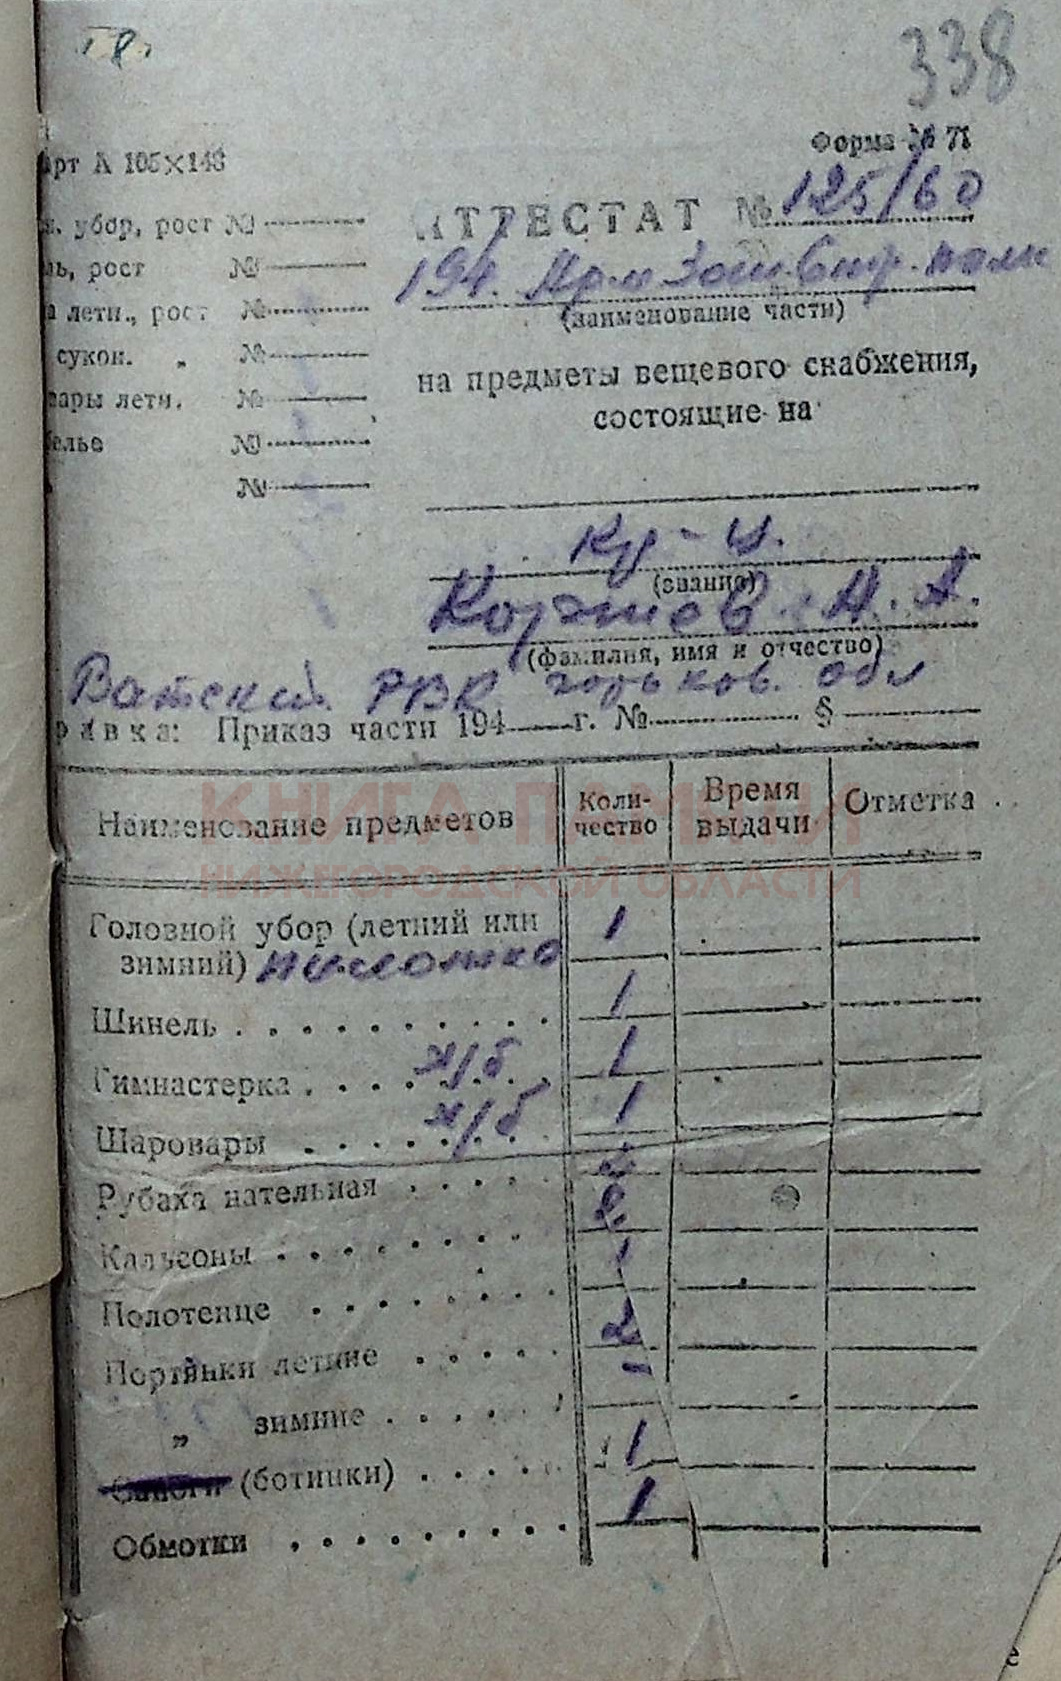 338
Форма № 71
арт А 105×148
АТТЕСТАТ № 125/60
194. Арм Зен. полк
(наименование части)
убор, рост №
ь, рост №
а летн., рост №
сукон. „ №
вары летн. №
белье №
№
на предметы вещевого снабжения,
состоящие на
кр-ц.
(звание)
Коржев Н. А.
(фамилия, имя и отчество)
Ватский РВК горьков. обл
равка: Приказ части 194 г. № §
Наименование предметов Коли-чество Время выдачи Отметка
КНИГА ПАМЯТИ
НИЖЕГОРОДСКОЙ ОБЛАСТИ
Головной убор (летний или
зимний) пилотка 1
Шинель 1
Гимнастерка х/б 1
Шаровары х/б 1
Рубаха нательная 2
Кальсоны 2
Полотенце 1
Портянки летние 2
„ зимние -
Сапоги (ботинки) 1
Обмотки 1